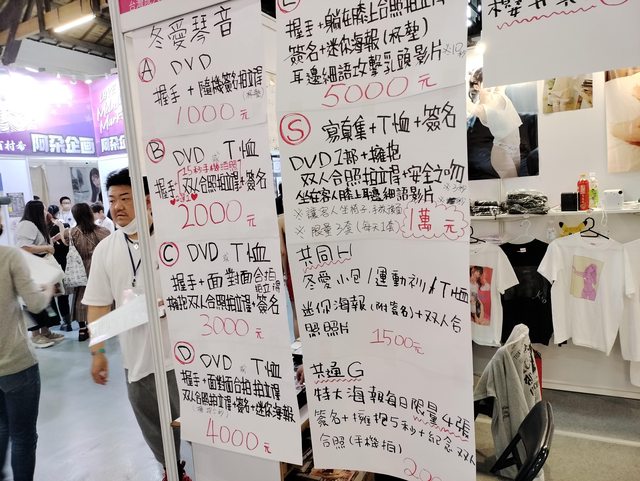 冬愛琴音
A DVD
握手+隨機簽名拍立得
(杯墊)
1000元
B DVD 或 T恤
15秒手機錄影
握手+双人合照拍立得+簽名
2000元
C DVD 或 T恤
握手+面對面合拍拍立得
擁抱双人合照拍立得+簽名
3000元
D DVD 或 T恤
握手+面對面合拍拍立得
双人合照拍立得+簽名+迷你海報
4000元
握手+躺在膝上合照拍立得
簽名+迷你海報(杯墊)
耳邊細語攻擊乳頭影片
5000元
S 寫真集+T恤+簽名
DVD 2部+擁抱
双人合照拍立得+安全之吻
坐在客人膝上耳邊細語影片
※限量3套(每天1套)
1萬元
共同H
T恤
迷你海報(附簽名)+双人合
照照片
1500元
共通G
特大海報每日限量4張
簽名+擁抱5秒+紀念双人
合照(手機拍)
阿朵企画
阿朵企画